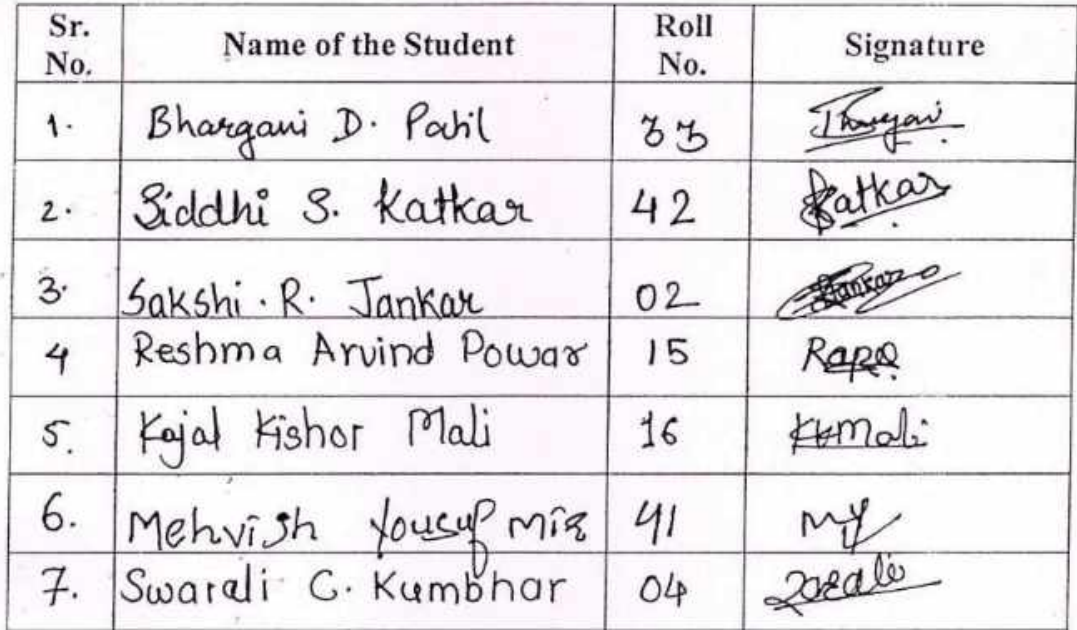 Sr. No. Name of the Student Roll No. Signature
1. Bhargavi D. Patil 33
2. Siddhi S. Katkar 42 Katkar
3. Sakshi. R. Jankar 02 Jankar
4 Reshma Arvind Powar 15
5. Kajal Kishor Mali 16 KKMali
6. Mehvish Yousuf mir 41 My
7. Swarali C. Kumbhar 04